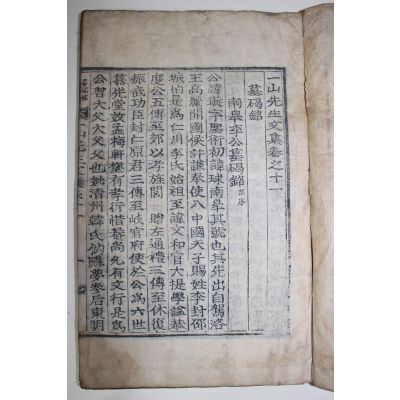 一山先生文集卷之十一
墓碣銘
南皐李公墓碣銘 並序
公諱 字聖術初諱琭南皐其號也其先出自駕洛
王高麗開國侯許謙奉使入中國天子賜姓李封邵
城伯是爲仁川李氏始祖至諱文和官大提學諡恭
度公五傳至郊以孝旌閭 贈左通禮三傳至休復
振武功臣封仁原君三傳至岐官府使於公爲六世
慕先堂 孟梅軒 有孝行惜 允有文行是爲
公曾大父大父父也妣清州韓氏 夢參后東明